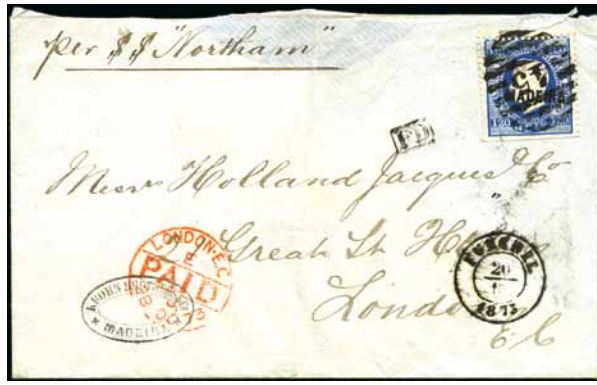 per SS "Northam"
MADEIRA
120
PD
Messrs Holland Jacques & Co
Great St H
London
E C
LONDON·E.C
E
PAID
8 OC 73
KROHN BROTHERS
MADEIRA
FUNCHAL
20
1873